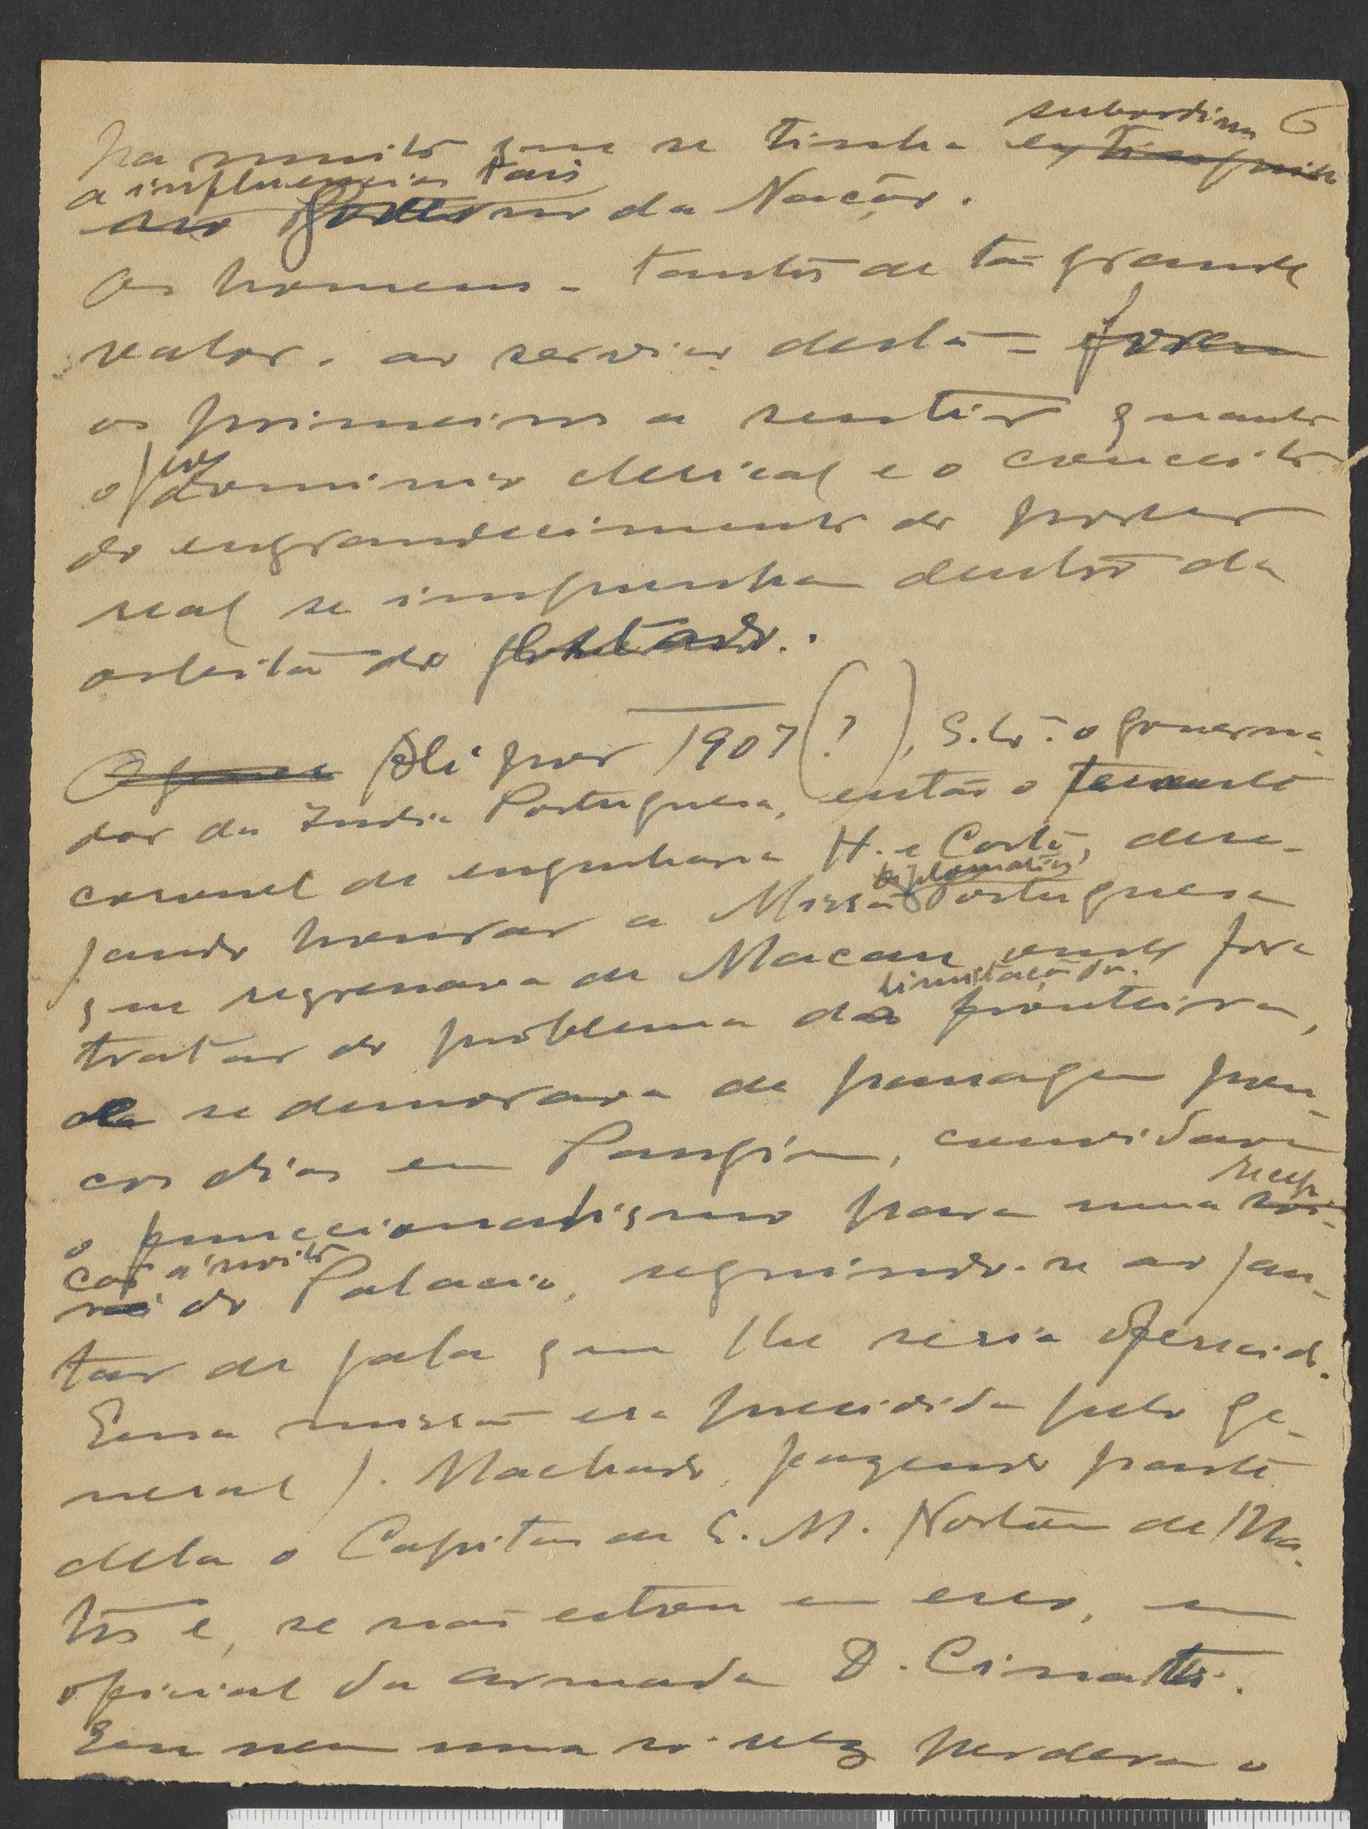 subordina 6
ha muito que se tinha extinguido
a influencias tais
ao Governo da Nação.
Os homens - tantos de tão grande
valor, ao serviço desta - foram
os primeiros a sentir quanto
o dominio clerical e o conceito
do engrandecimento do poder
real se impunha dentro da
orbita do Estado.
Ali por 1907 (?), S. Ex.ª o governa-
dor da India Portuguesa, então o tenente
coronel de engenharia H. e Costa, dese-
diplomatica
jando honrar a Missão Portuguesa
que regressava de Macau onde fora
limitação da
tratar do problema das fronteira,
e se demorava de passagem pou-
cos dias em Pangim, convidara
o funccionalismo para uma
recep-
ção á noite
do Palacio, seguindo-se ao jan-
tar de gala que lhe seria oferecido.
Essa missão era presidida pelo ge-
neral J. Machado, fazendo parte
dela o Capitão de E. M. Norton de Ma-
tos e, se não estou em erro, um
oficial da armada D. Cinatti.
Eu nem uma só vez perdera o